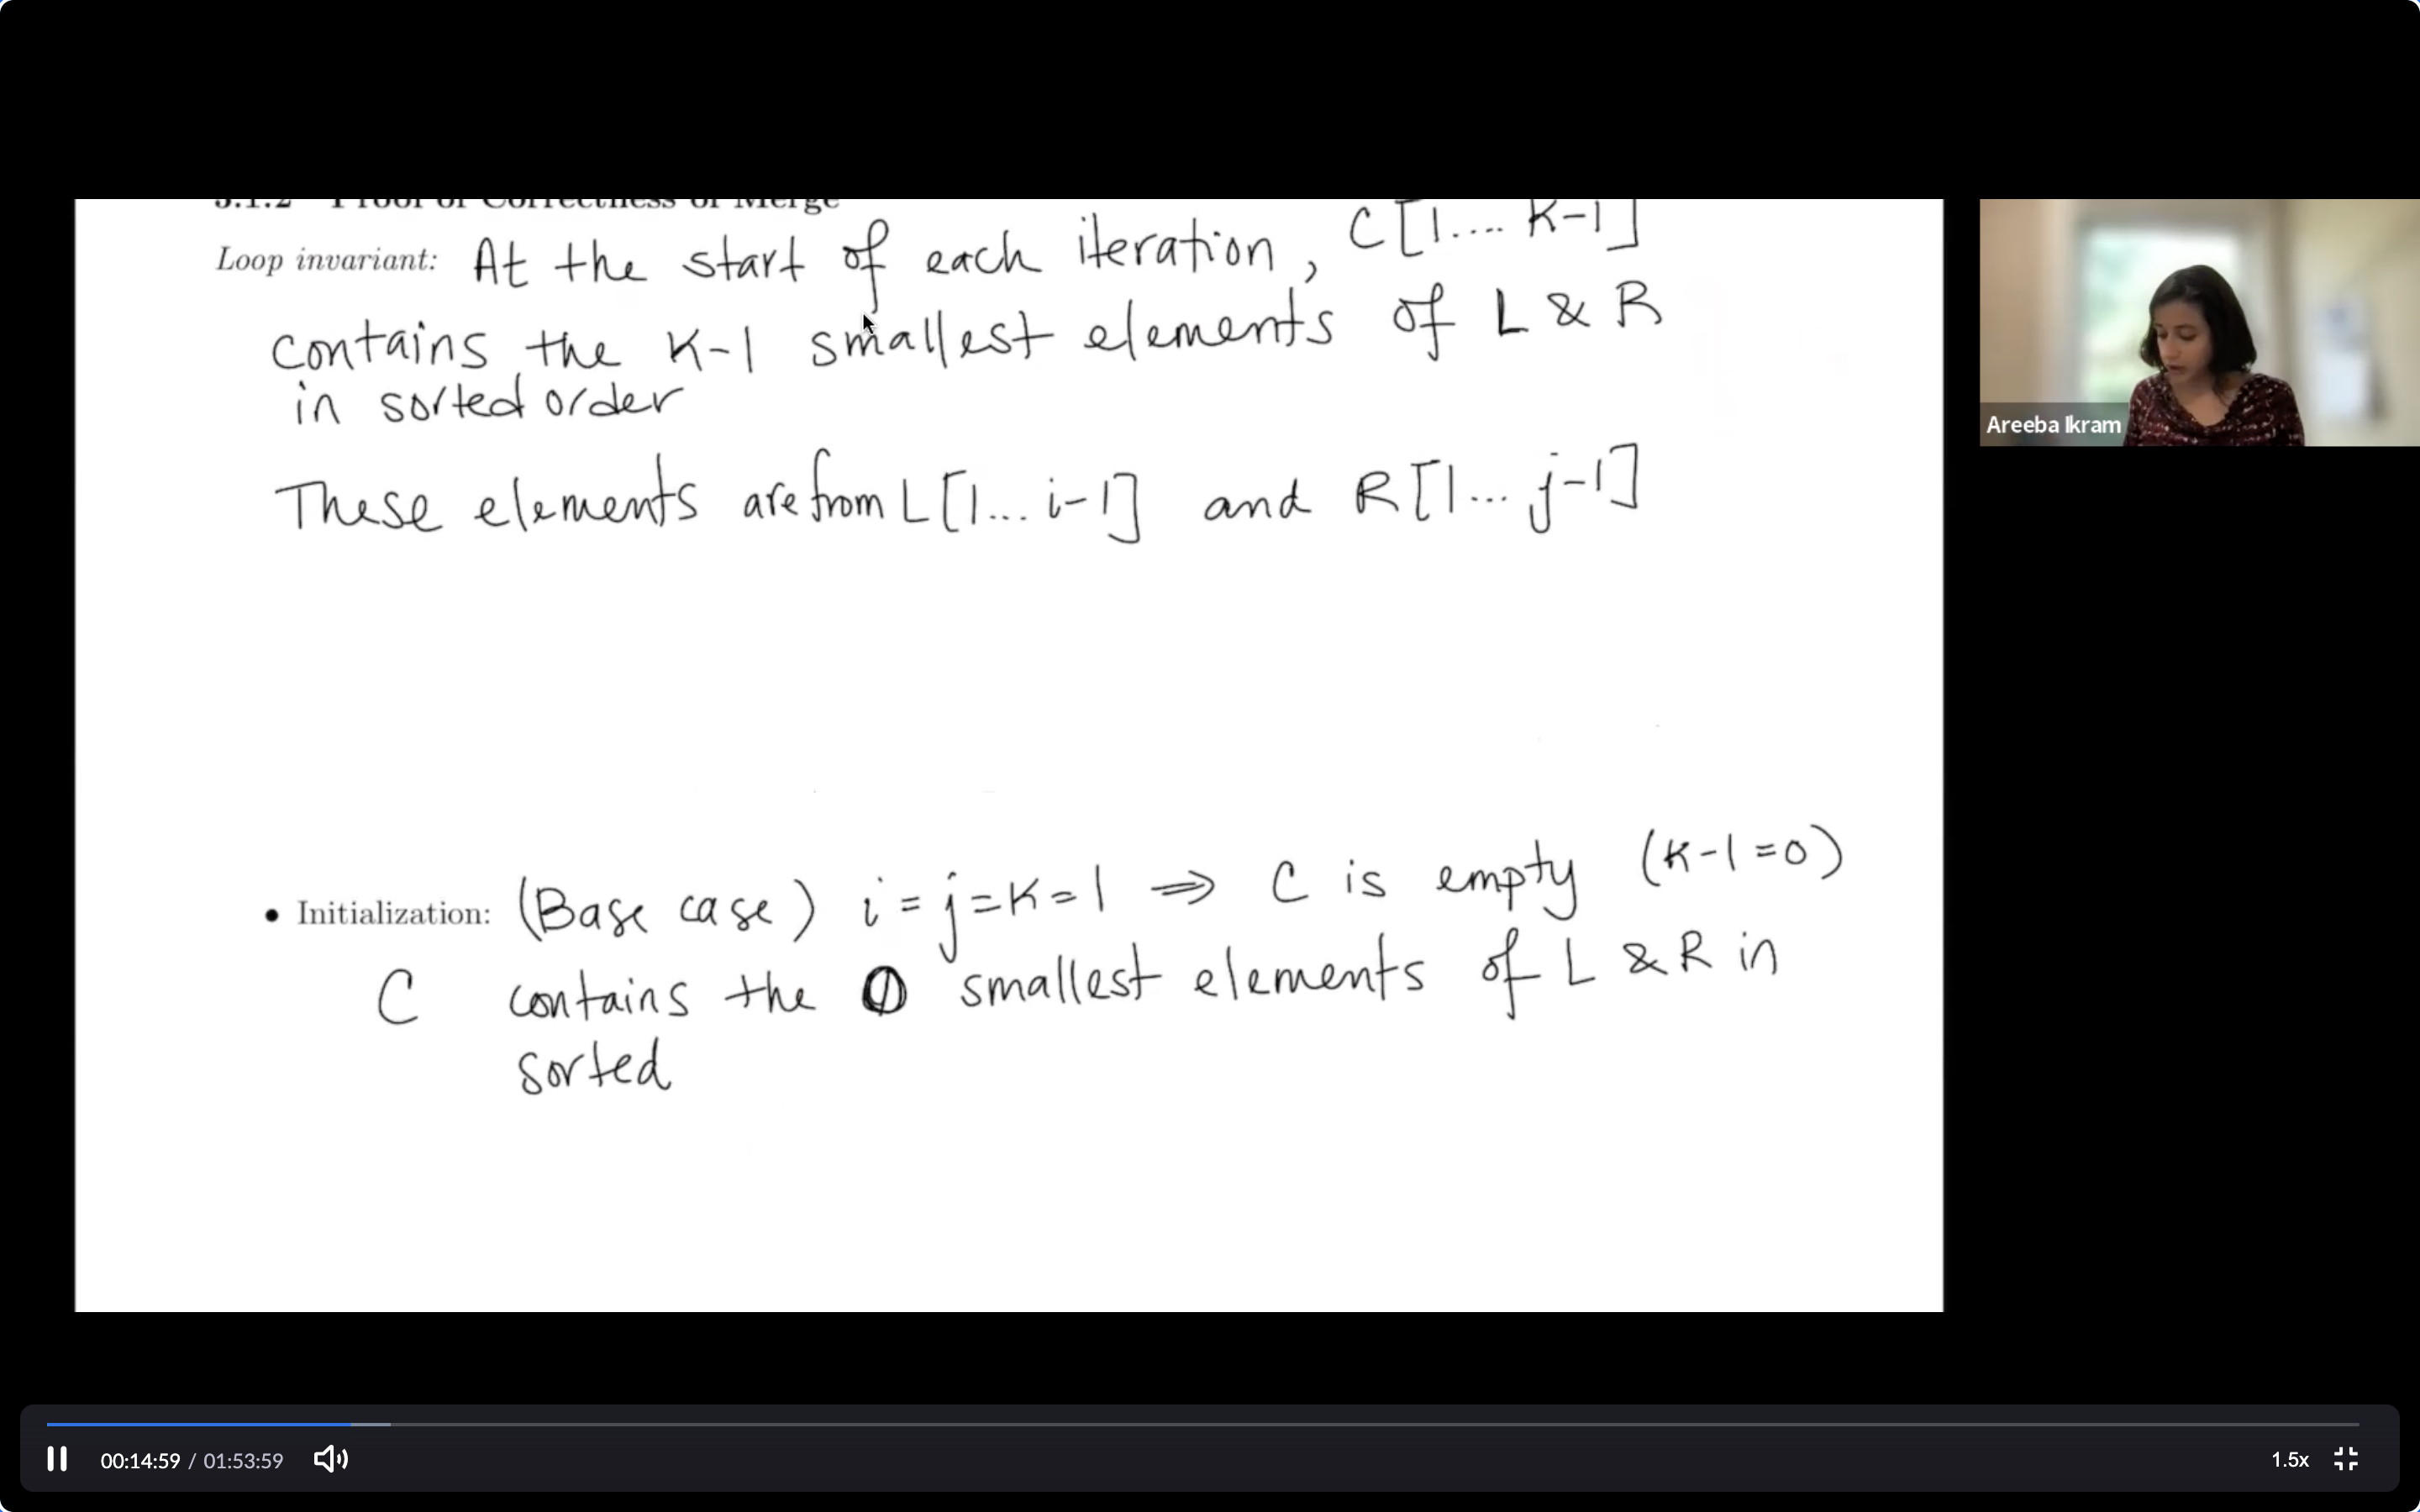 3.1.2 Proof of Correctness of Merge
Loop invariant: At the start of each iteration, C[1.... K-1]
contains the K-1 smallest elements of L & R
in sorted order
These elements are from L[1... i-1] and R[1... j-1]
• Initialization: (Base case) i=j=K=1 ⇒ C is empty (K-1=0)
C contains the 0 smallest elements of L & R in
sorted
Areeba Ikram
00:14:59 / 01:53:59
1.5x